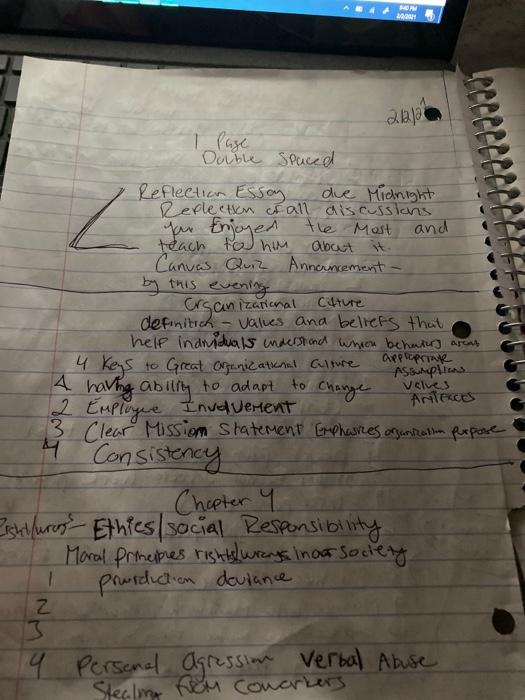 5:40 PM
2/2/2021
2/2/21
1 Page
Double Spaced
Reflection Essay due Midnight
Reflection of all discussions
you Enjoyed the Most and
teach to him about it.
Canvas Quiz Announcement -
by this evening
Organizational Culture
definition - values and beliefs that
help individuals understand which behaviors
appropriate
4 Keys to Great Organizational Culture
Assumptions
1 having ability to adapt to change
Values
Artifacts
2 Employee Involvement
3 Clear Mission Statement Emphasizes organization purpose
4 Consistency
Chapter 4
Right/wrong - Ethics/social Responsibility
Moral principles rights/wrongs in our society
1 deviance
2
3
4 Personal Agression Verbal Abuse
Stealing from coworkers